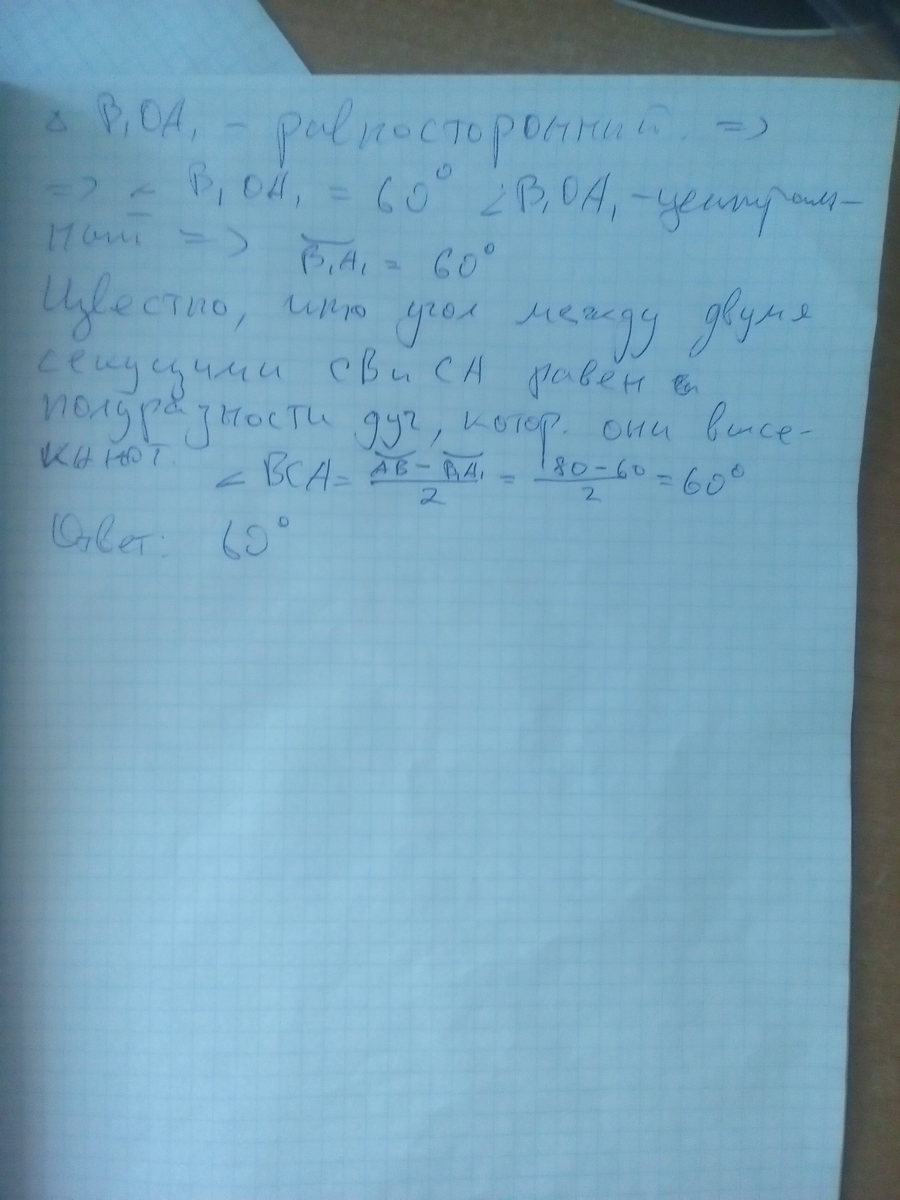 △ B₁OA₁ - равносторонний. =>
=> ∠ B₁OA₁ = 60° ∠B₁OA₁ - централь-
ный => ◡B₁A₁ = 60°
Известно, что угол между двумя
секущими CB и CA равен
полуразности дуг, котор. они высе-
кают.
∠ BCA = (◡AB - ◡B₁A₁)/2 = (180-60)/2 = 60°
Ответ: 60°